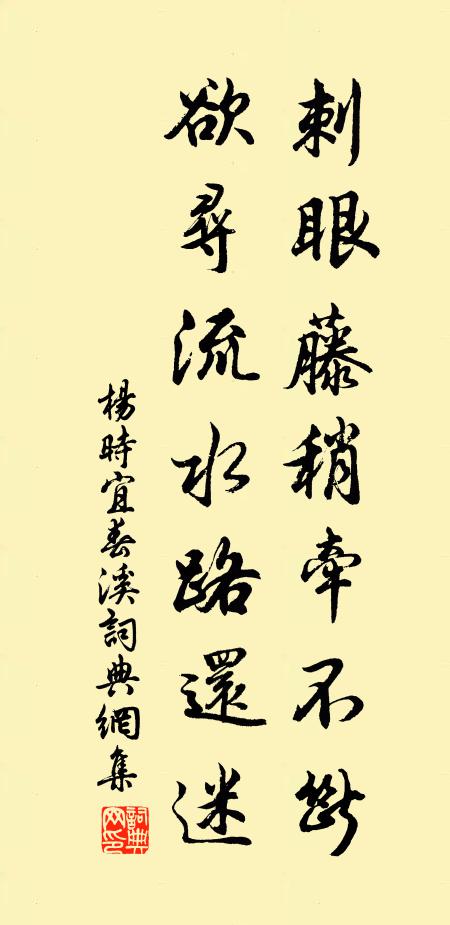 刺眼藤稍牽不斷
欲尋流水路還迷
楊時宜春溪詞典網集
詞典网印